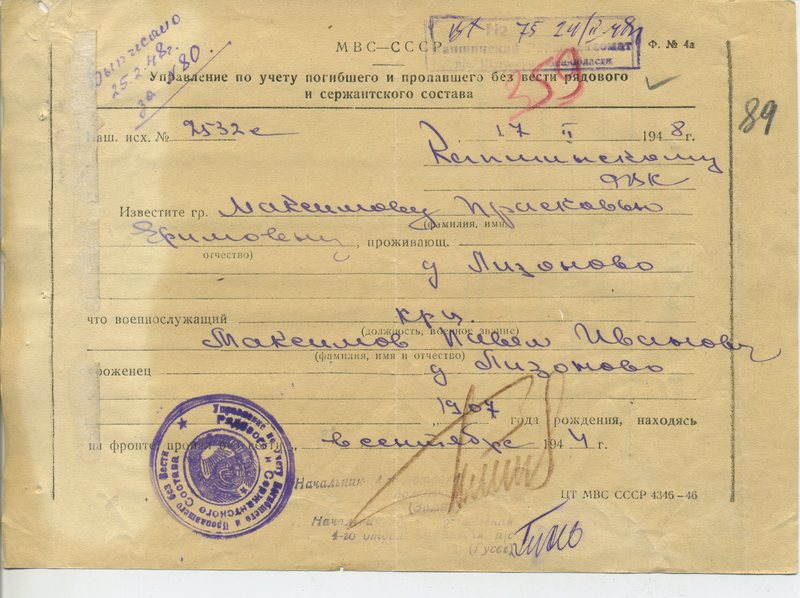 Выписано
25.2.48г.
за 180.
вх № 75 24/II 48г
359
МВС—СССР
Ф. № 4а
Управление по учету погибшего и пропавшего без вести рядового
и сержантского состава
89
Наш. исх. № 2532с 17 II 1948г.
Капшинскому
РВК
Известите гр. Максимову Прасковью
(фамилия, имя,
Ефимовну, проживающ.
отчество)
д Лизоново
что военнослужащий крц.
(должность, военное звание)
Максимов Павел Иванович
(фамилия, имя и отчество)
уроженец д Лизоново
1907 года рождения, находясь
на фронте, пропал без вести в сентябре 1944 г.
Управление по учету Погибшего и Пропавшего без Вести
Рядового и Сержантского Состава
Начальник 4
ЦТ МВС СССР 4346—46
Начальник
4-го отдела
(Гусев)